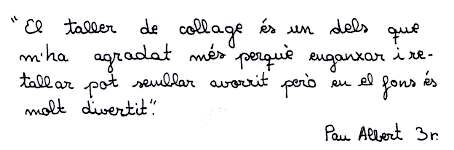 "El taller de collage és un dels que
m'ha agradat més perquè enganxar i re-
tallar pot semblar avorrit però en el fons és
molt divertit".
Pau Albert 3r.